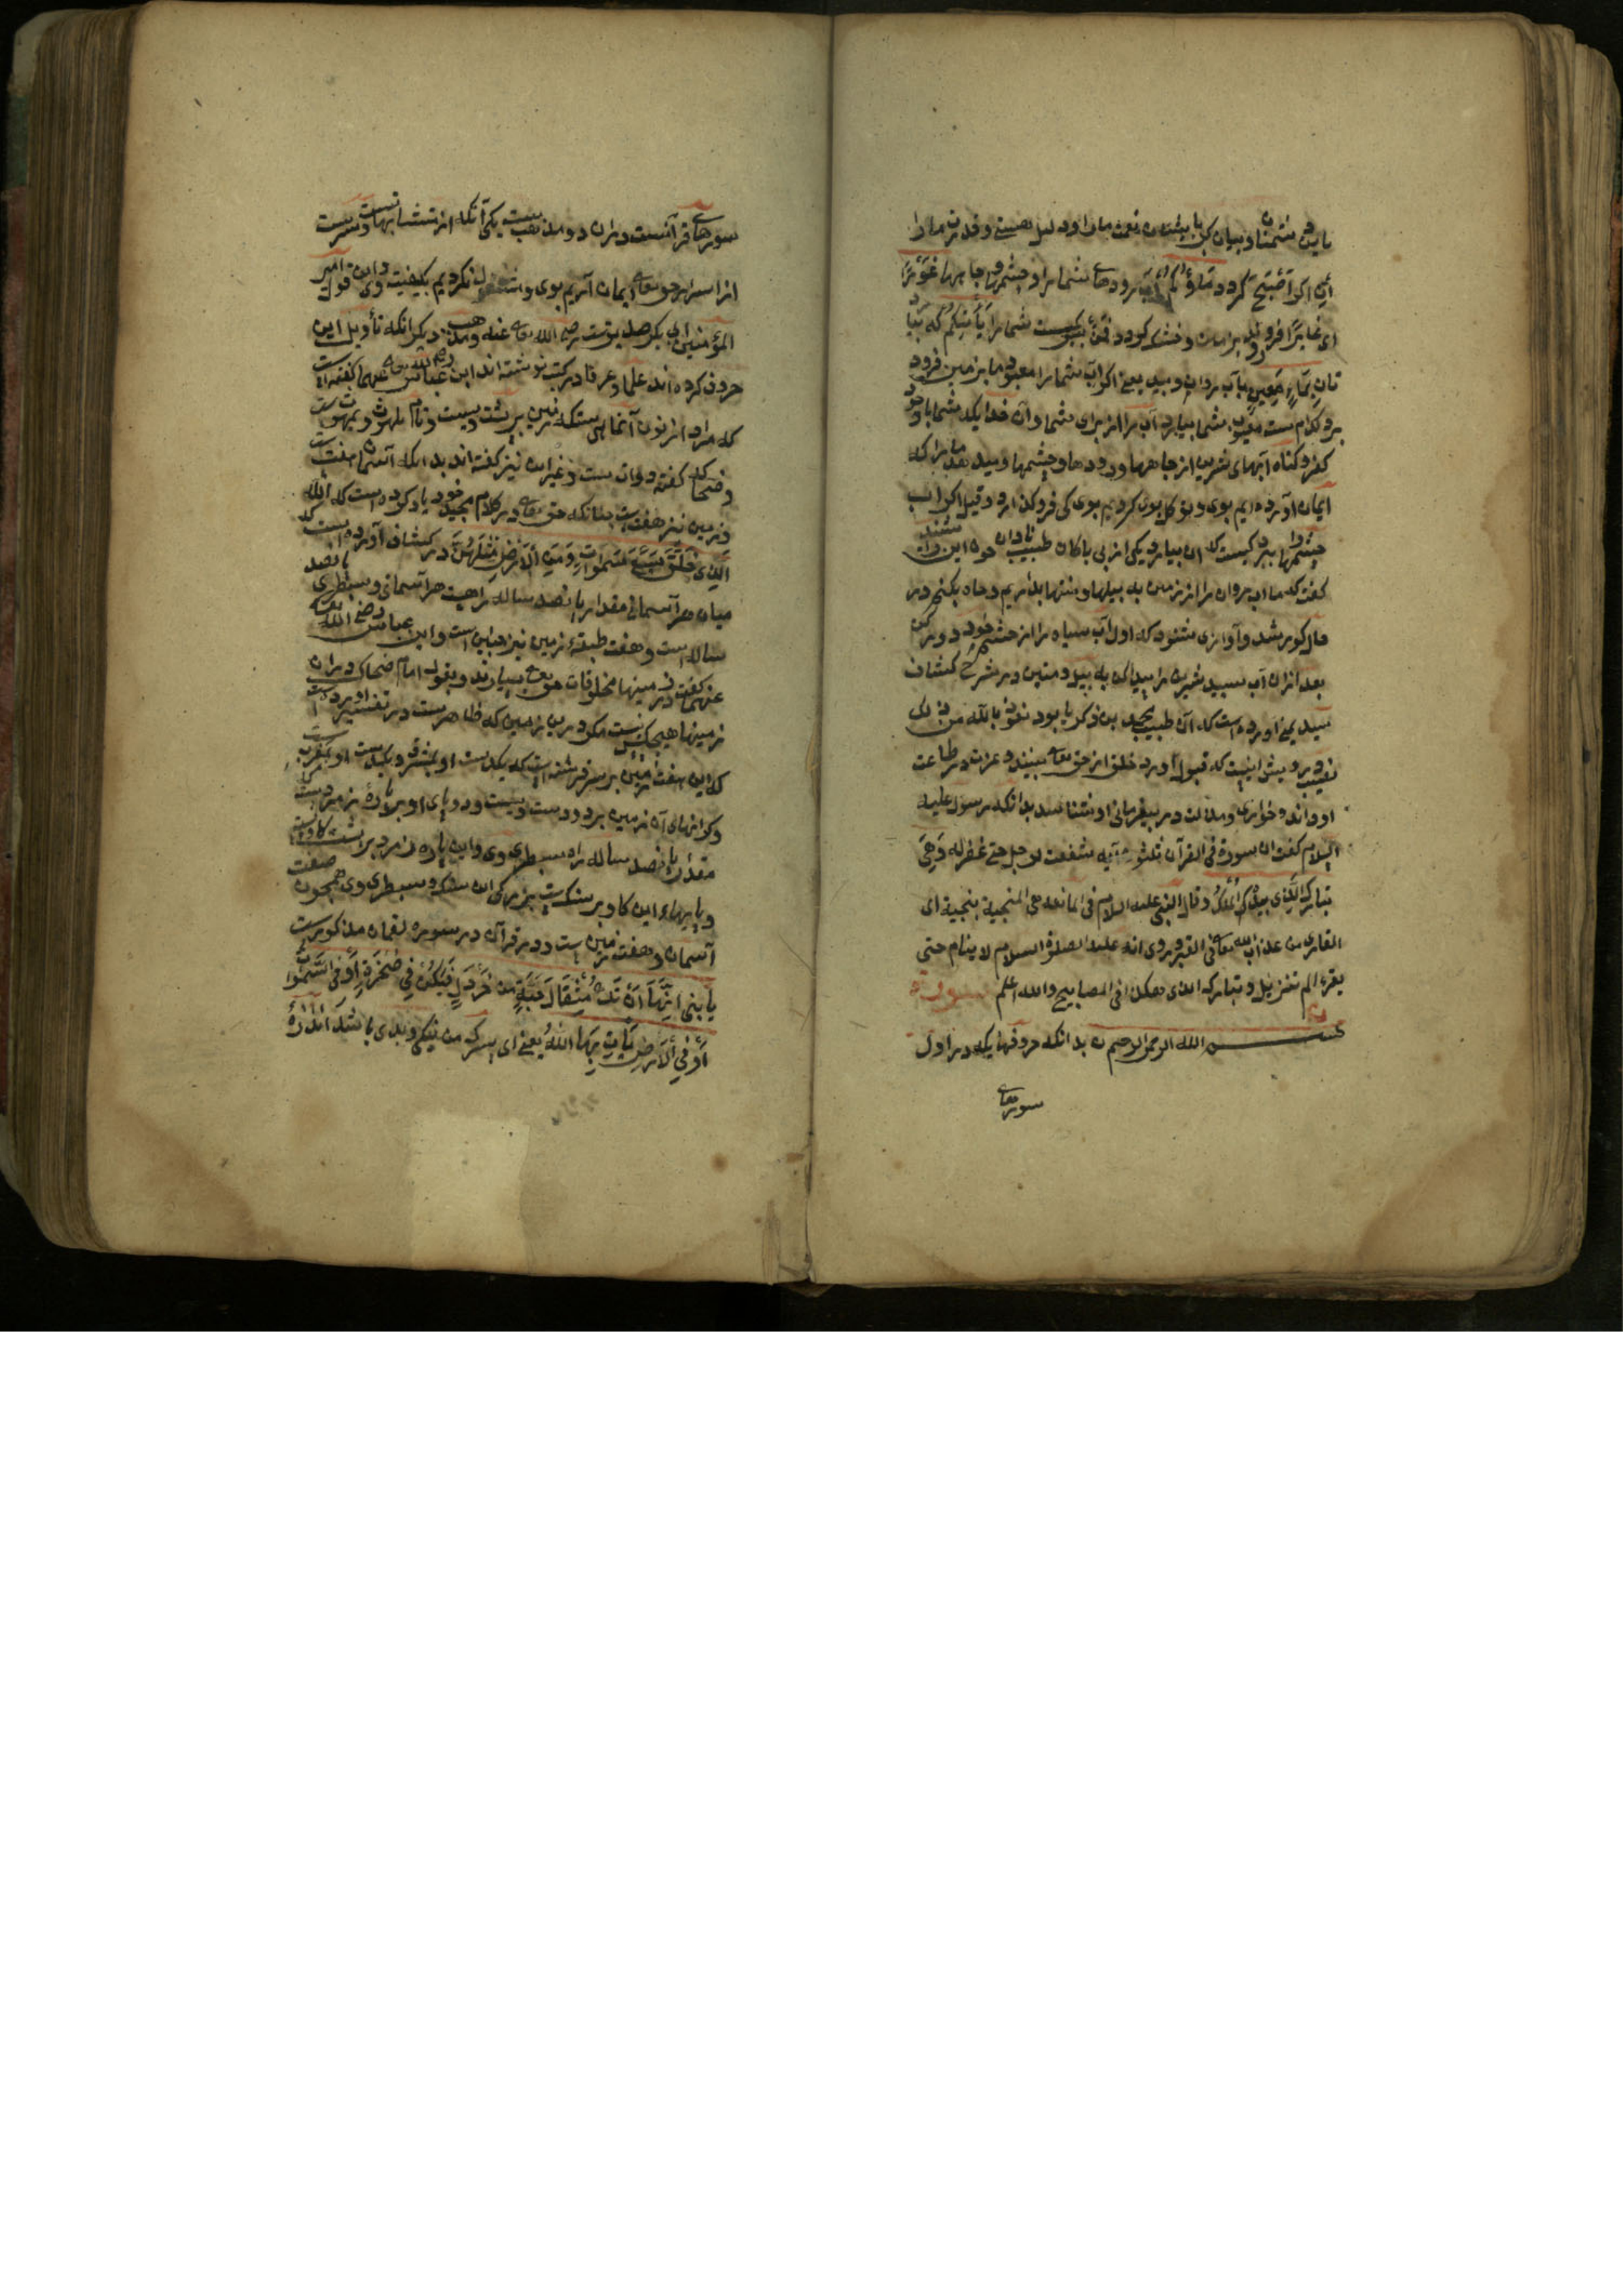 یا بین شمنا و بیان کن با نعمت ما را و دلیل هستی و قدرت ما را
ان اگر اصبح گردد ماؤکم آب رودهای شما را و چشمه و چاهها غورا
ای غایرا فرو رود بر زمین و خشک گردد فمن کیست شما را یأتیکم که بیا
تان بماء معین بآب روان و پدید یعنی اگر آب شما را معبود ما بزمین فرود
برد کدام ست معبود شما بیارد آب را از برای شما و آن خدایکه شما با وجود
کفر و گناه آبهای شیرین از چاهها و رودها و چشمها و میدهد ما را که
ایمان آورده ایم بوی و توکل بوی کردیم بوی کی فرو گذارد و قیل اگر آب
چشمها را ببرد کیست که آن بیارد یکی از بی باکان طبیب نادان چون این را شنید
گفت که ما آب روان را از زمین به بیلها و متنها بدر آریم و چاه بکنیم در
حال کور شد و آوازی شنود که اول آب سیاه را از چشم خود دور کن
بعد ازان آب سپید شیرین را پیدا کن به بیل و متین در شرح کشاف
سید یمنی آورده است که آن طبیب محمد بن زکریا بود نعوذ بالله من ذلک
نصیب درویش اینست که قبول و رد خلق از حق تعالی بیند و عزت در طاعت
او داند و خواری و مذلت در بیفرمانی او شناسد بدانکه رسول علیه
السلام گفت ان سورة فی القرآن ثلثون آیه شفعت لرجل حتی غفر له و هی
تبارک الذی بیده الملک و قال النبی علیه السلام هی المانعة هی المنجیة تنجیه ای
القاری من عذاب الله تعالی فی القبر و روی انه علیه الصلوة السلام لا ینام حتی
یقرء الم تنزیل و تبارک الذی هکذا فی المصابیح والله اعلم سورة
ن
بسم الله الرحمن الرحیم ن بدانکه حروفهایکه در اول
سورهای
سورهای قرآنست دران دو مذهب ست یکی آنکه از متشابهاتست و سریست
از اسرار حق تعالی ایمان آریم بوی و مشغول نکردیم بکیفیت وی و این قول امیر
المؤمنین ابی بکر صدیق ست رضی الله تعالی عنه و مذهب دیگر آنکه تأویل این
حروف کرده اند علما و عرفا در کتب نوشته اند ابن عباس رضی الله تعالی عنهما گفته است
که مراد از نون آن ماهی ست که زمین بر پشت ویست و نام یلهوث و بهموت ست
و ضحاک گفته دوات ست و غیر این نیز گفته اند بدانکه آسمان هفت ست
و زمین نیز هفت ست چنانکه حق تعالی در کلام مجید خود یاد کرده است که الله
الذی خلق سبع سموات و من الارض مثلهن در کشاف آورده است که
میان هر آسمانی مقدار پانصد ساله راهست هر آسمانی و سطبری پانصد
ساله است و هفت طبقهٔ زمین نیز چنین است و ابن عباس رضی الله تعالی
عنهما گفت در زمینها مخلوقات حق تعالی بسیارند و بقول امام ضحاک دران
زمینها هیچکس نیست مگر درین زمین که ظاهرست در تفسیر آورده است
که این هفت زمین بر سر فرشته است که یکدست او بمشرق و یکدست او بمغرب ست
و کرانهای آن زمین بر دو دست ویست و دو پای او بر پارهٔ زمردست
مقدار پانصد ساله راه سطبری وی و این پاره زمرد بر پشت گاوست
و پایهاء این گاو بر سنگ ست بزرگی این سنگ و سطبری وی همچون صفت
آسمان و هفت زمین ست و در قرآن در سورهٔ لقمان مذکورست
یا بنی انها ان تک مثقال حبة من خردل فتکن فی صخرة او فی السموات
او فی الارض یأت بها الله یعنی ای پسرک من نیکی و بدی باشد اندازهٔ